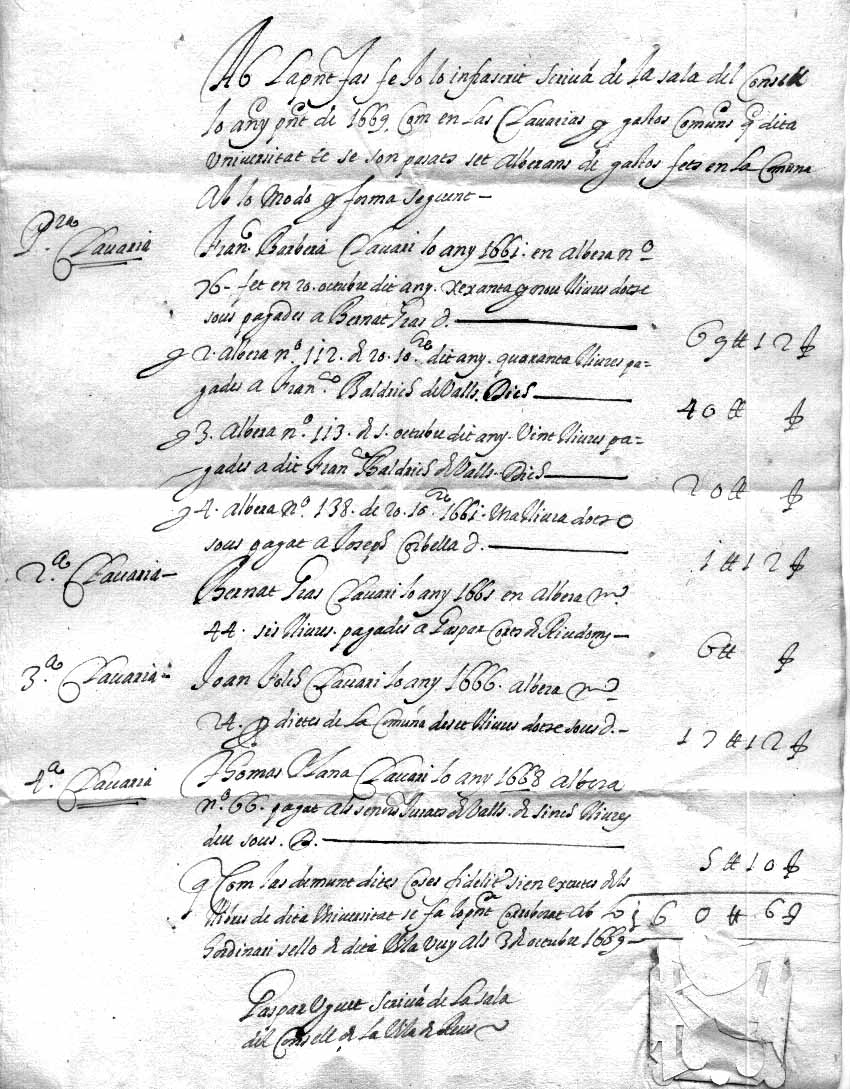 Ab la pnt fas fe Jo lo infrascrit scrivá de la sala del Consell
lo añy pnt de 1669. Com en las Clavarias y gastos Comuns q dita
Universitat &c se son pasats set Alberans de gastos fets en la Comuna
Ab lo modo y forma seguent-
Pra. Clavaria Franc. Barberá Clavari lo any 1661. en albera no
76- fet en 20. octubre dit any. xexanta y nou lliures dotse
sous pagades a Bernat Gras d. 69 ℔ 12 ẞ
y 2. Albera no. 112. de 20. 10re dit any. quaranta lliures pa-
gades a Franco. Baldrich de Valls. Dich 40 ℔ ẞ
y 3. Albera no. 113. de 5. octubre dit any. Vint lliures pa=
gades a dit Franco Baldrich de Valls. Dich 20 ℔ ẞ
y 4. albera no. 138. de 20. 10re 1661. Una lliura dotse
sous pagat a Joseph Corbella d. 1 ℔ 12 ẞ
2.a Clavaria- Bernat Gras Clavari lo any 1665 en albera no
44. sis lliures. pagades a Gaspar de Riudoms- 6 ℔ ẞ
3.a Clavaria- Joan Folch Clavari lo any 1666. albera no
24. p dietes de la Comuna deset lliures dotse sous d.- 17 ℔ 12 ẞ
4.a Clavaria Thomas Plana Clavari lo any 1668 albera
no. 66. pagat als senors Jurats de Valls. de sinch lliures
deu sous. D. 5 ℔ 10 ẞ
y Com las demunt dites Coses fidelit sien extretes dels
llibres de dita Universitat se fa lo pnt Corroborat Ab lo 160 ℔ 6 ẞ
hordinari sello de dita Vila vuy als 3 de octubre 1669-
Gaspar Uguet scrivá de la sala
del Consell de la Vila de Reus